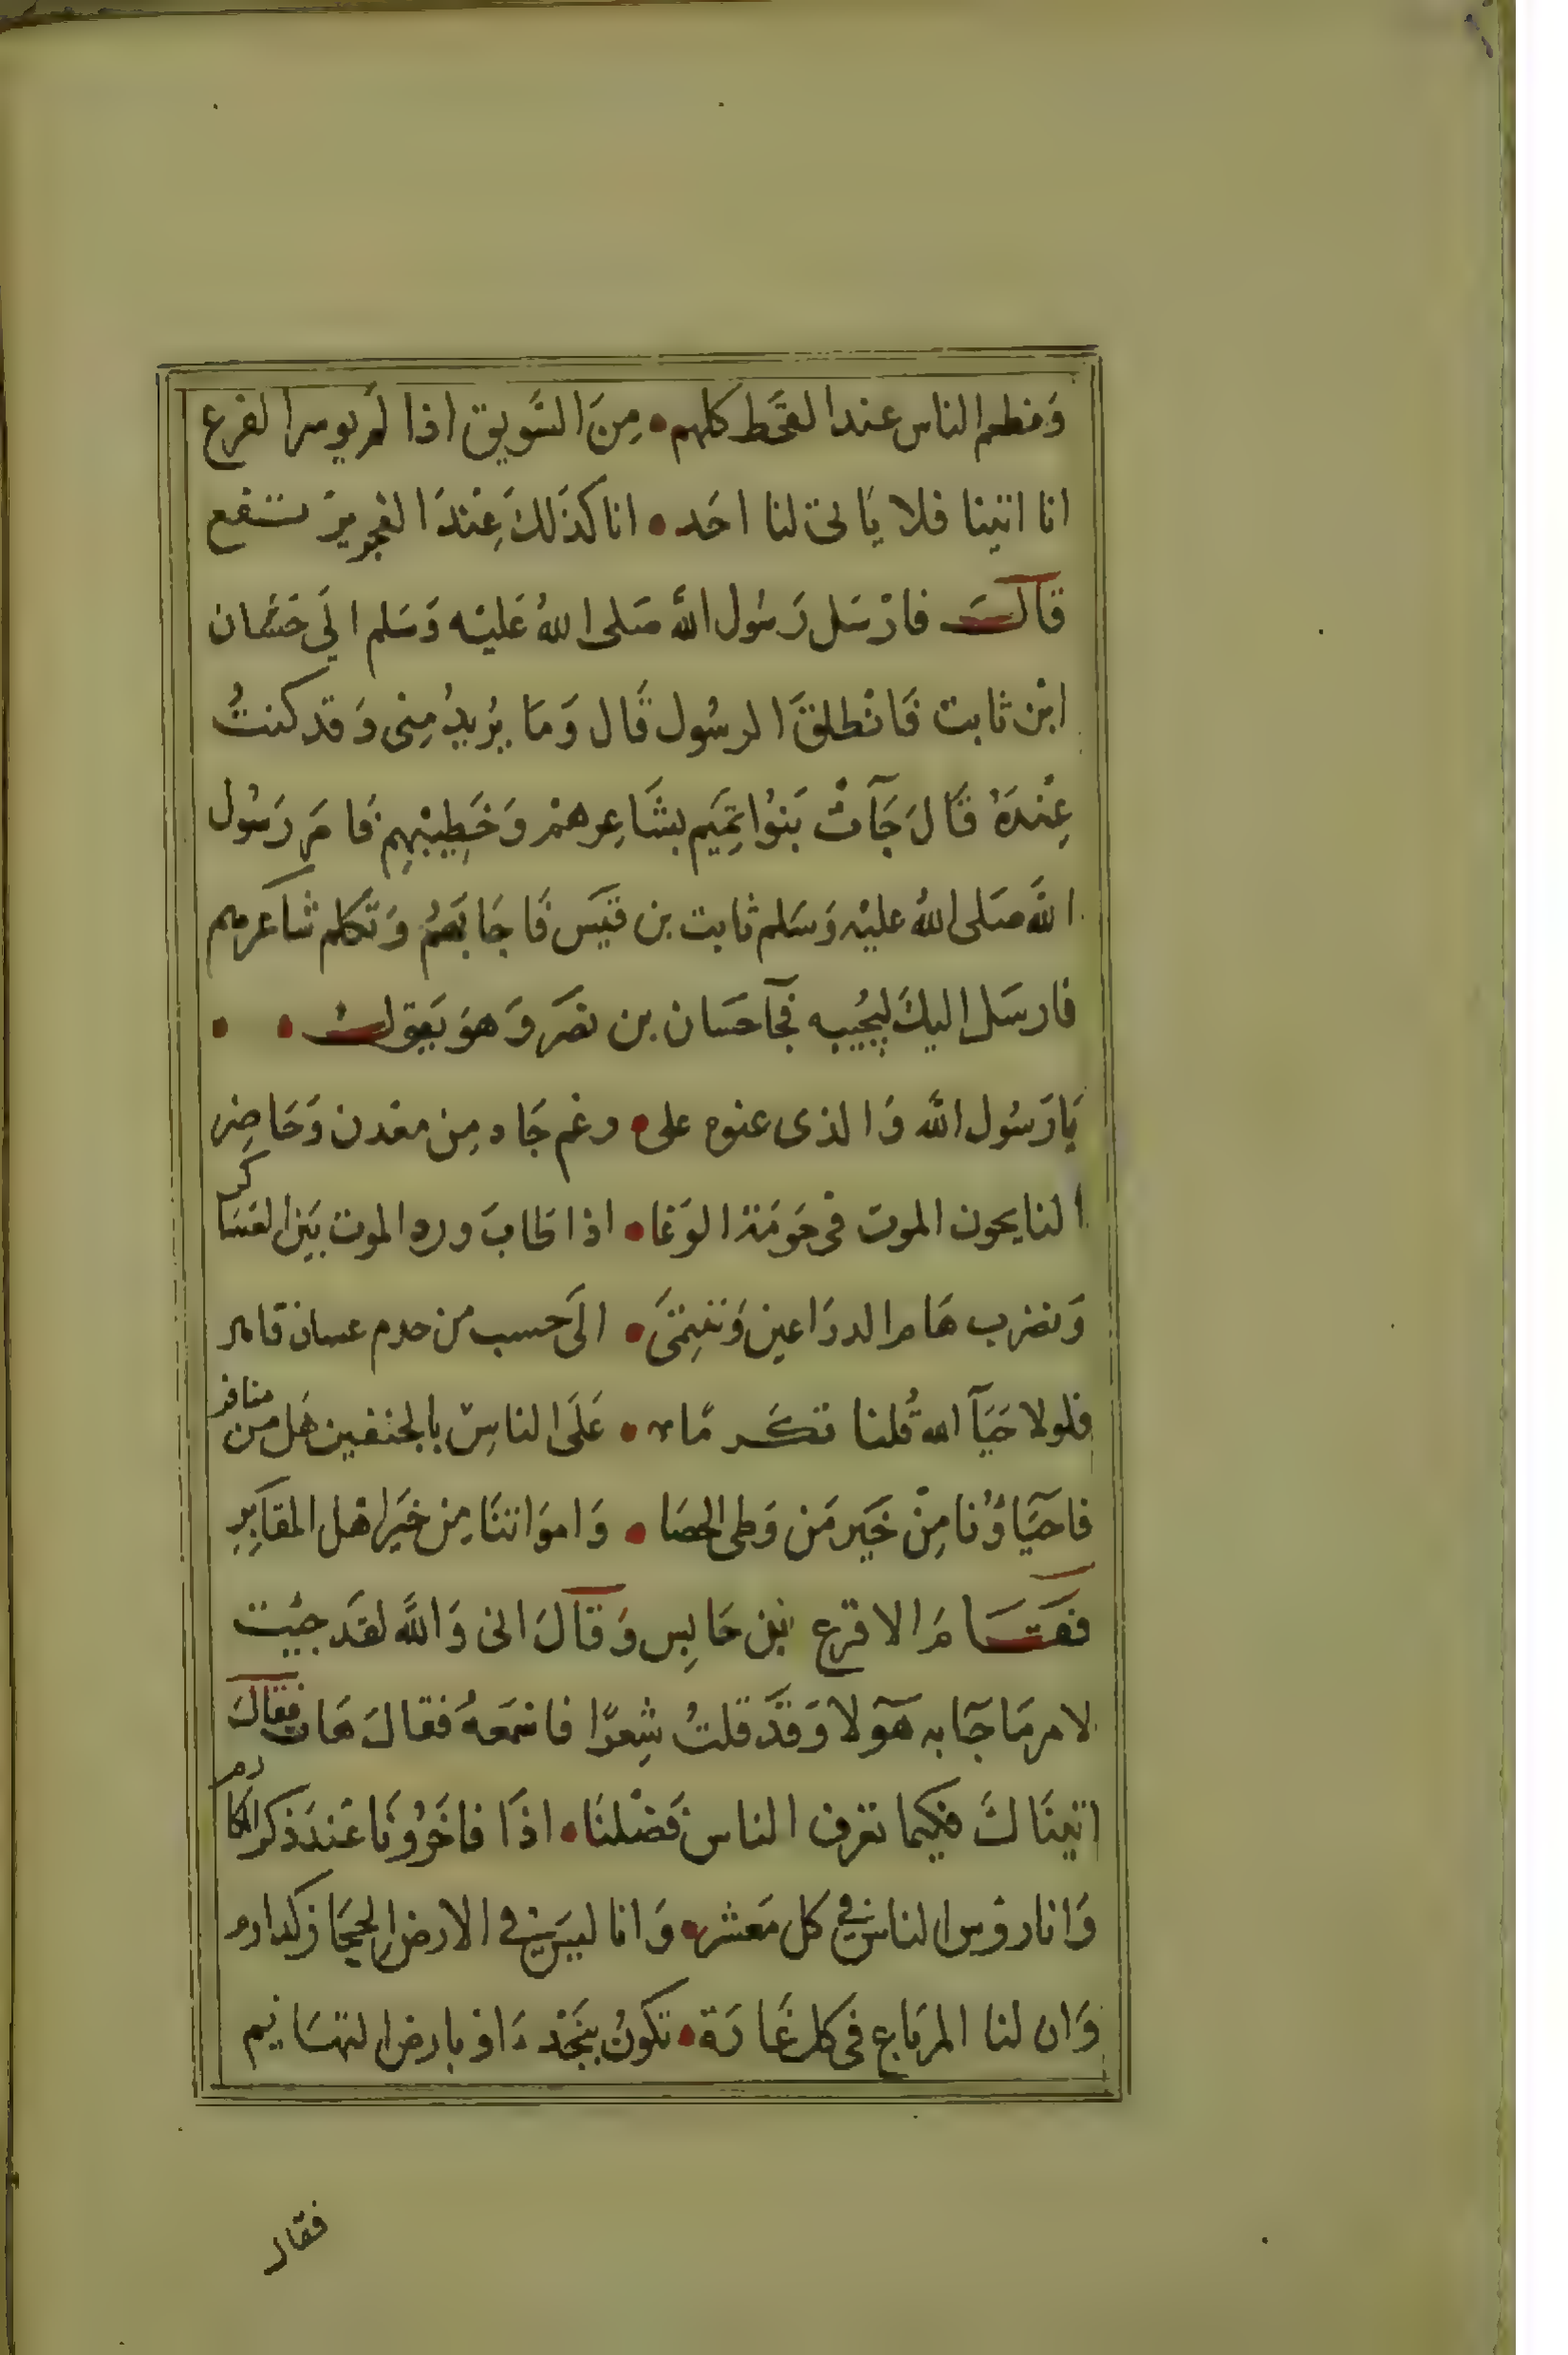 وَنطعم الناس عند القَحَط كلهم • مِنَ السَّويق اذا لم يومر القزع
انا اتينا فلا يَاتى لنا احَد • انا كذَلكَ عِنْدَ الفجر ير تشفع
قالت فارْسَل رَسُول اللَّه صَلى اللهُ عَليْه وَسَلم الَى حَسَّان
ابْن ثابت فَانْطلقَ الرسُول قَال وَمَا يرُيدُ مِنى وَقد كنتُ
عِنْدَهُ قَالَ جَآتْ بَنُوا تمِيَم بشَاعِرهمْ وَخَطِيبْهِم فَامَر رَسُول
اللَّه صَلى اللهُ عليْه وَسَلم ثابت بن قيَس فَاجَابَهُم وَتَكلم شاعرهم
فارسَل اليكَ لتُجِيبه فجَآ حَسَان بن نصَر وَهوَ يَقولُ • •
يَا رَسُول اللَّه وَالذى عنوه على • رغم جَاء مِن معَدن وَحَاضِر
النا يحون الموت فى حَومَة الوَغا • اذا طَابَ ورد الموت بَيَن العسَاكر
وَنضرب هَام الدرَاعين وَننِمَتَى • الَى حسب من حرم عسان قاهر
فلولا حَيَآ الله قُلنا تكَرمًا • عَلَى الناسِ بالخنفين هَل من منافر
فاحَيَاؤُنا مِنْ خَيَر مَن وَطى الحصَا • وَاموَاتنَا مِن خيَر اهَل المقابِرِ
فقَامَ الاقرع بن حَابِس وَقَالَ انى وَاللَّه لقَد جيْت
لامر مَا جَآ به هَؤلا وَقدَ قلتُ شِعرًا فاسْمَعهُ فقالَ هَات فقالَ
اتيناكَ فكيما تعرف الناس فَضْلنَا • اذَا فاخَرُوَنا عنَد ذكر المكارم
وَانا روْس الناس فِي كل مَعشر • وَانا ليَس فِي الارضِ الحجَاز كدارم
وَان لنا المربَاع فى كل غَارَة • تكونُ بنجَد اوْ بارض التهَايم
فقال